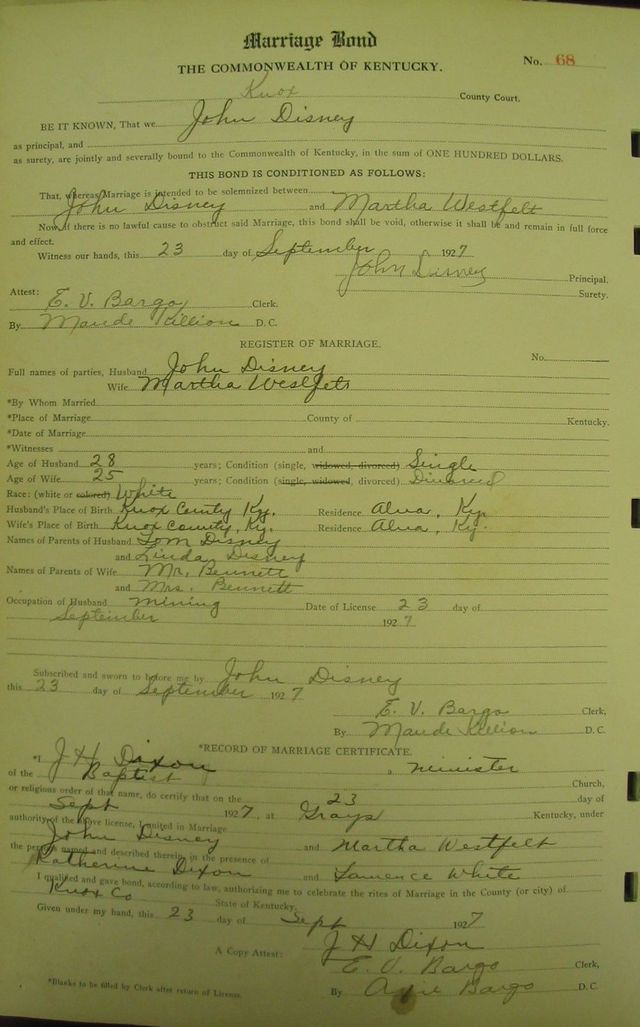 Marriage Bond
THE COMMONWEALTH OF KENTUCKY. No. 68
Knox County Court.
BE IT KNOWN, That we John Disney
as principal, and
as surety, are jointly and severally bound to the Commonwealth of Kentucky, in the sum of ONE HUNDRED DOLLARS.
THIS BOND IS CONDITIONED AS FOLLOWS:
That, whereas Marriage is intended to be solemnized between
John Disney and Martha Westfelt
Now, if there is no lawful cause to obstruct said Marriage, this bond shall be void, otherwise it shall be and remain in full force
and effect.
Witness our hands, this 23 day of September 1927
John Disney Principal.
Surety.
Attest:
E. V. Bargo Clerk.
By Maude Killion D. C.
REGISTER OF MARRIAGE.
No.
Full names of parties, Husband John Disney
Wife Martha Westfelt
*By Whom Married
*Place of Marriage County of Kentucky.
*Date of Marriage
*Witnesses and
Age of Husband 28 years; Condition (single, widowed, divorced) Single
Age of Wife 25 years; Condition (single, widowed, divorced) Divorced
Race: (white or colored) White
Husband's Place of Birth Knox County Ky. Residence Alva, Ky.
Wife's Place of Birth Knox County, Ky. Residence Alva, Ky.
Names of Parents of Husband Tom Disney
and Linda Disney
Names of Parents of Wife Mr. Bennett
and Mrs. Bennett
Occupation of Husband Mining Date of License 23 day of
September 1927
Subscribed and sworn to before me by John Disney
this 23 day of September 1927
E. V. Bargo Clerk,
By Maude Killion D. C.
*RECORD OF MARRIAGE CERTIFICATE.
*I J H Dixon, a minister
of the Baptist Church,
or religious order of that name, do certify that on the 23 day of
Sept 1927, at Grays Kentucky, under
authority of the above license, I united in Marriage
John Disney and Martha Westfelt
the persons named and described therein in the presence of
Katherine Dixon and Lawrence White
I qualified and gave bond, according to law, authorizing me to celebrate the rites of Marriage in the County (or city) of
Knox Co State of Kentucky.
Given under my hand, this 23 day of Sept 1927
J H Dixon
A Copy Attest: E. V. Bargo Clerk,
*Blanks to be filled by Clerk after return of License. By Bargo D. C.